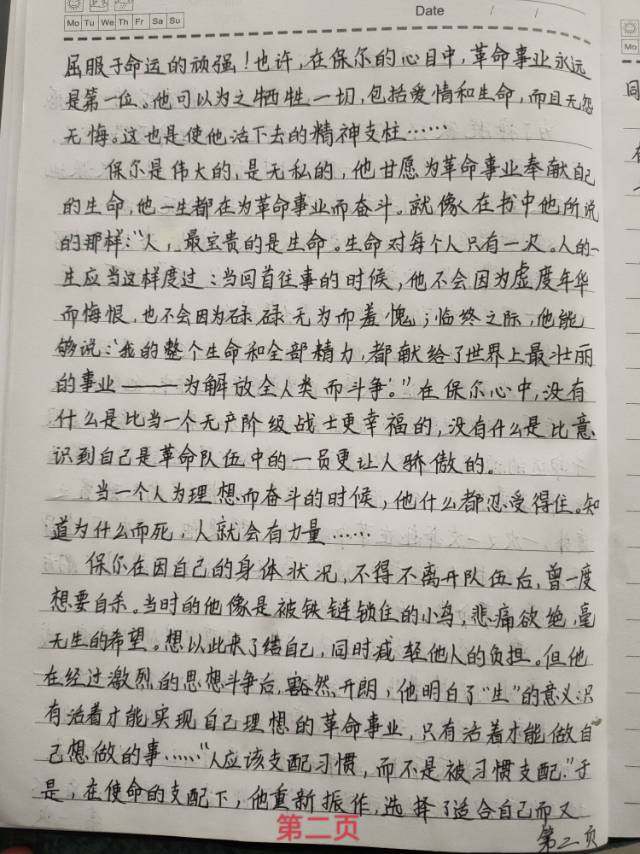 Date / /
Mo Tu We Th Fr Sa Su
屈服于命运的顽强！也许，在保尔的心目中，革命事业永远
是第一位。他可以为之牺牲一切，包括爱情和生命，而且无怨
无悔。这也是使他活下去的精神支柱……
保尔是伟大的，是无私的，他甘愿为革命事业奉献自己
的生命，他一生都在为革命事业而奋斗。就像在书中他所说
的那样：“人，最宝贵的是生命。生命对每个人只有一次。人的一
生应当这样度过：当回首往事的时候，他不会因为虚度年华
而悔恨，也不会因为碌碌无为而羞愧；临终之际，他能
够说：‘我的整个生命和全部精力，都献给了世界上最壮丽
的事业——为解放全人类而斗争’。”在保尔心中，没有
什么是比当一个无产阶级战士更幸福的，没有什么是比意
识到自己是革命队伍中的一员更让人骄傲的。
当一个人为理想而奋斗的时候，他什么都忍受得住。知
道为什么而死，人就会有力量……
保尔在因自己的身体状况，不得不离开队伍后，曾一度
想要自杀。当时的他像是被铁链锁住的小鸟，悲痛欲绝，毫
无生的希望。想以此来了结自己，同时减轻他人的负担。但他
在经过激烈的思想斗争后，豁然开朗，他明白了“生”的意义：只
有活着才能实现自己理想的革命事业，只有活着才能做自
己想做的事……“人应该支配习惯，而不是被习惯支配。”于
是，在使命的支配下，他重新振作，选择了适合自己而又
第二页
第二页